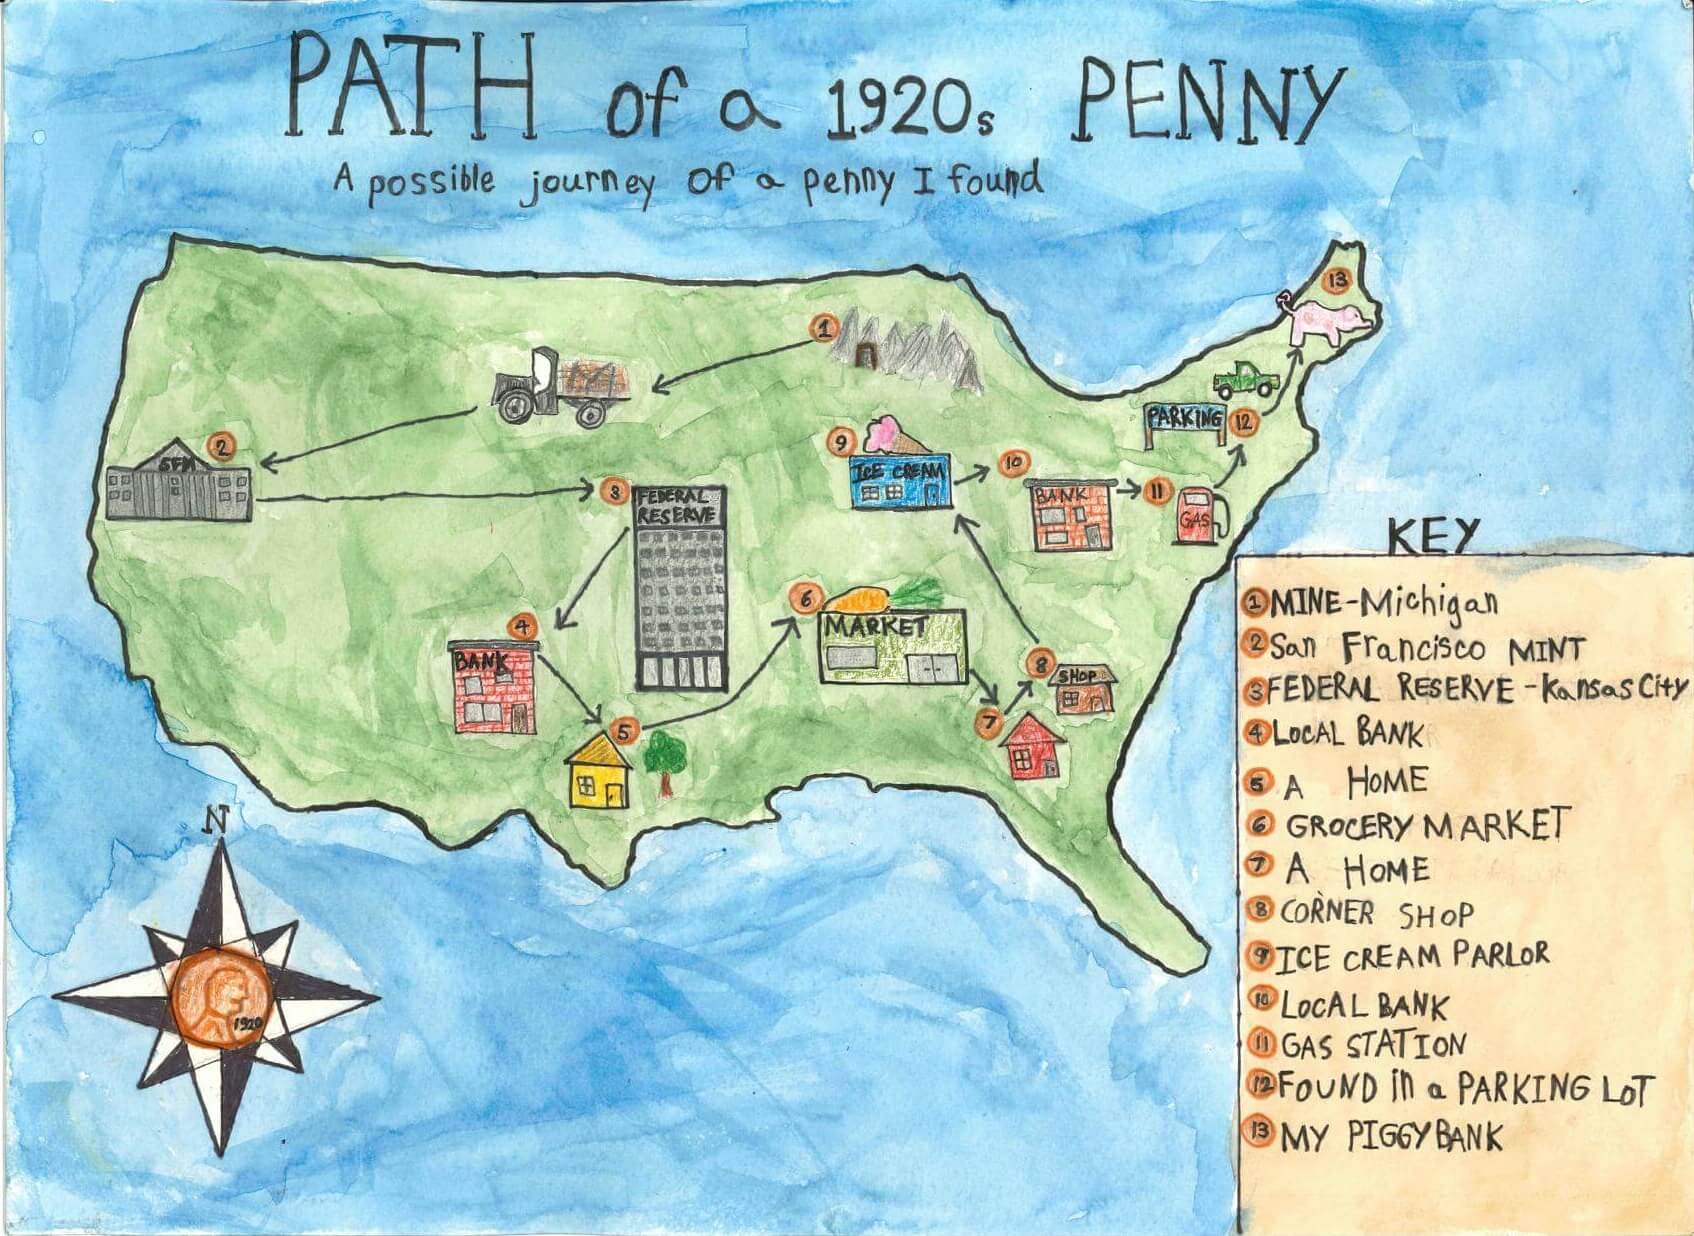 PATH of a 1920s PENNY
A possible journey of a penny I found
13
1
PARKING 12
2
SFM
9
ICE CREAM
10
3
FEDERAL
RESERVE
BANK
11
GAS
4
BANK
6
MARKET
8
SHOP
5
7
N
1920
KEY
1 MINE-Michigan
2 San Francisco MINT
3 FEDERAL RESERVE-Kansas City
4 LOCAL BANK
5 A HOME
6 GROCERY MARKET
7 A HOME
8 CORNER SHOP
9 ICE CREAM PARLOR
10 LOCAL BANK
11 GAS STATION
12 FOUND in a PARKING LOT
13 MY PIGGYBANK